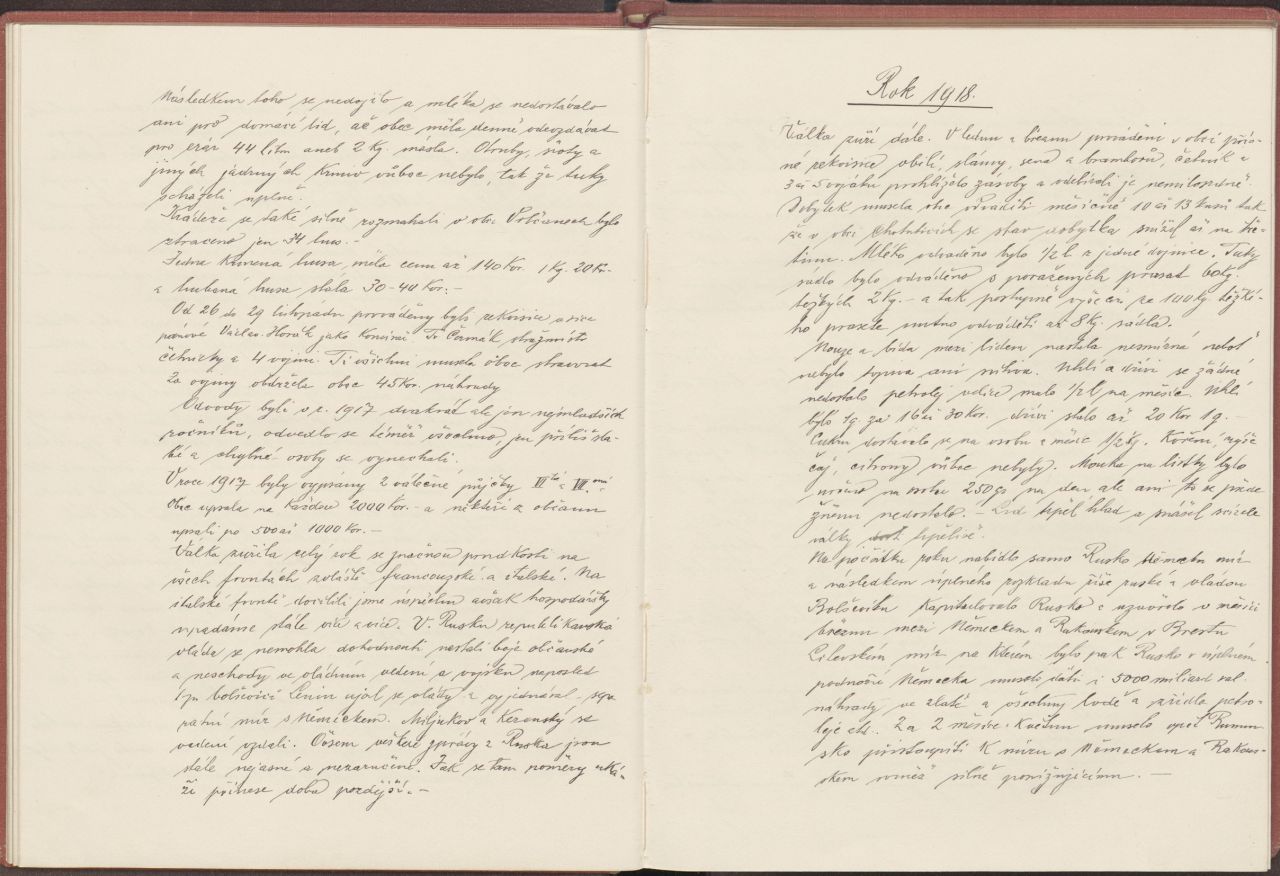 Následkem toho se nedojilo a mléka se nedostávalo
ani pro domácí lid, ač obec měla denně odevzdávat
pro erár 44 litrů aneb 2 Kg. másla. Otruby, šroty a
jiných jádrných krmiv vůbec nebylo, tak že tuky
scházeli úplně.
Krádeže se také silně rozmahali v obci Vrbčanech bylo
ztraceno jen 34 hus. –
Jedna krmená husa, měla cenu až 140 Kor. 1 Kg. 20 Kr.
a hubená husa stála 30–40 Kor. –
Od 26 do 29 listopadu prováděny byli rekvisice a sice
pánové Václav Horák jako Komisař Fr Čermák strážmistr
četnický a 4 vojíni. Ti všichni musela obec stravovat
Za ovíny obdržela obec 45 Kor. náhrady
Odvody byli v r. 1917 dvakrát ale jen nejmladších
ročníků, odvedlo se téměř všechno, jen příliš sla-
bé a chybné osoby se vynechali.
V roce 1917 byly vypsány 2 válečné půjčky VI tá a VII. má
Obec upsala na každou 2000 Kor. – a někteří z občanů
upsali po 500 až 1000 Kor. –
Válka zuřila celý rok se značnou prudkostí na
všech frontách zvláště francouzské a italské. Na
italské frontě docílili jsme úspěchu avšak hospodářsky
upadáme stále více a více. V Rusku republikánská
vláda se nemohla dohodnouti nastali boje občanské
a neschody ve vládním vedení a vojsku naposled
tzv. bolševici Lenin ujal se vlády a vyjednával sepa
ratní mír s Německem. Miljukov a Kerenský se
vedení vzdali. Ovšem veškeré zprávy z Ruska jsou
stále nejasné a nezaručené. Jak se tam poměry uká-
ží přinese doba pozdější. –
Rok 1918.
Válka zuří dále. V lednu a březnu prováděni v obci přís-
né rekvisice obilí, slámy, sena a bramborů, četník a
3 až 5 vojáků prohlíželo zásoby a odebírali je nemilosrdně.
Dobytek musela obec odváděti měsíčně 10 až 13 kusů tak
že v obci Chotuticích se stav dobytka snížil až na tře-
tinu. Mléko odváděno bylo 1/2 l. z jedné dojnice. Tuky
sádlo bylo odváděno s poražených prasat 60 Kg.
těžkých 2 Kg. – a tak postupně výše až ze 100 Kg. těžké-
ho prasete nutno odváděti až 8 Kg. sádla.
Nouze a bída mezi lidem nastala nesmírná neboť
nebylo topiva ani svítiva. Uhlí a dříví se žádné
nedostalo petrolej velice málo 1/2 l na měsíc. Uhlí
bylo 1 q. za 16 až 30 Kor. dříví stálo až 20 Kor 1 q. –
Cukru dostávalo se na osobu a měsíc 1/2 Kg. Koření, rýže
čaj, citrony vůbec nebyly. Mouka na lístky bylo
určeno na osobu 250 gr. na den ale ani to se přede
žněmi nedostalo. – Lid trpěl hlad a snášel svízele
války trpělivě.
Na počátku roku nabídlo samo Rusko Německu mír
a následkem úplného rozkladu říše ruské a vládou
Bolševiků kapitulovalo Rusko a uzavřelo v měsíci
březnu mezi Německem a Rakouskem v Brestu
Litevském mír na kterém bylo pak Rusko v úplném
područí Německa muselo dáti i 5000 miliard
náhrady ve zlatě a všechny lodě a zřídla petro-
leje atd. Za 2 měsíce Květnu muselo opět Rumun-
sko přistoupiti k míru s Německem a Rakous-
kem rovněž silně ponižujícímu. –